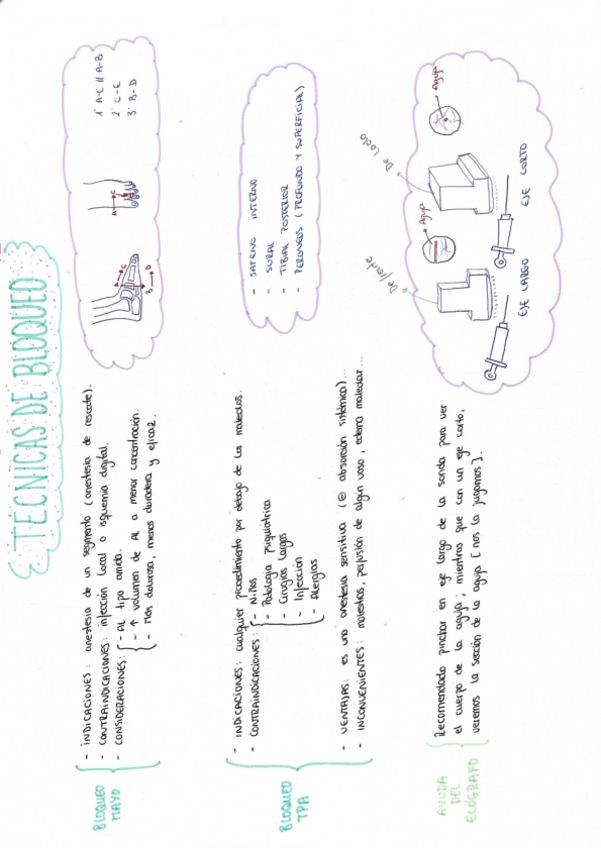 TÉCNICAS DE BLOQUEO
BLOQUEO
MAYO
- INDICACIONES: anestesia de un segmento (anestesia de rescate).
- CONTRAINDICACIONES: infección local o isquemia digital.
- CONSIDERACIONES: - AL tipo amida.
- ↑ volumen de AL a menor concentración.
- Más doloroso, menos duradera y eficaz.
A C
B D
A C
1º A-C // A-B
2º C-E
3º B-D
BLOQUEO
TPA
- INDICACIONES: cualquier procedimiento por debajo de los maleolos.
- CONTRAINDICACIONES: - Niños
- Patología psiquiátrica
- Cirugías largas
- Infección
- Alergias
- VENTAJAS: es una anestesia sensitiva (⊖ absorción sistémica)...
- INCONVENIENTES: molestias, perfusión de algún vaso, edema maleolar...
- SAFENO INTERNO
- SURAL
- TIBIAL POSTERIOR
- PERONEOS (PROFUNDO Y SUPERFICIAL)
AYUDA
DEL
ECÓGRAFO
Recomendado pinchar en eje largo de la sonda para ver
el cuerpo de la aguja; mientras que con un eje corto,
veremos la sección de la aguja [nos la jugamos].
De frente
Aguja
EJE LARGO
De lado
Aguja
EJE CORTO